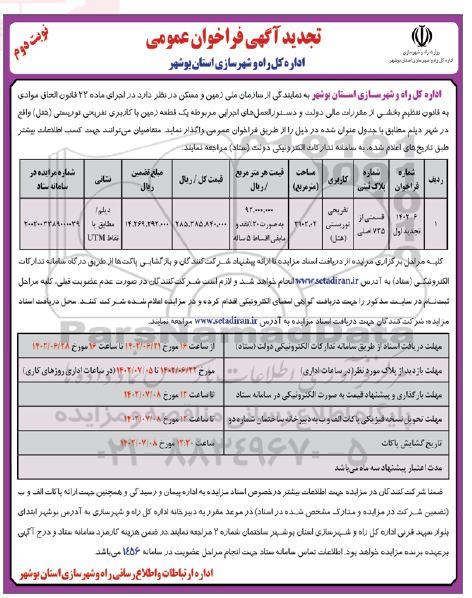 نوبت دوم
تجدید آگهی فراخوان عمومی
اداره کل راه و شهرسازی استان بوشهر
وزارت راه و شهرسازی
اداره کل راه و شهرسازی استان بوشهر
اداره کل راه و شهرسازی استان بوشهر به نمایندگی از سازمان ملی زمین و مسکن در نظر دارد در اجرای ماده ۲۲ قانون الحاق موادی
به قانون تنظیم بخشی از مقررات مالی دولت و دستورالعمل‌های اجرایی مربوطه یک قطعه زمین با کاربری تفریحی توریستی (هتل) واقع
در شهر دیلم مطابق با جدول عنوان شده در ذیل را از طریق فراخوان عمومی واگذار نماید. متقاضیان می‌توانند جهت کسب اطلاعات بیشتر
طبق تاریخ های اعلام شده، به سامانه تدارکات الکترونیکی دولت (ستاد) مراجعه نمایند.
ردیف
شماره فراخوان
شماره پلاک ثبتی
کاربری
مساحت (مترمربع)
قیمت هر متر مربع / ریال
قیمت کل / ریال
مبلغ تضمین ریال
نشانی
شماره مزایده در سامانه ستاد
۱
۱۴۰۲-۶ تجدید اول
قسمتی از ۷۳۵ اصلی
تفریحی توریستی (هتل)
۳۱۰۲،۰۲
۹۲،۰۰۰،۰۰۰
به صورت ۳۰٪ نقد و مابقی اقساط ۵ ساله
۲۸۵،۳۸۵،۸۴۰،۰۰۰
۱۴،۲۶۹،۲۹۲،۰۰۰
دیلم / مطابق با نقاط UTM
کلیه مراحل برگزاری مزایده از دریافت اسناد مزایده تا ارائه پیشنهاد شرکت‌کنندگان و بازگشایی پاکت‌ها از طریق درگاه سامانه تدارکات
الکترونیکی (ستاد) به آدرس www.setadiran.ir انجام خواهد شد و لازم است شرکت‌کنندگان در صورت عدم عضویت قبلی، کلیه مراحل
ثبت‌نام در سایت مذکور را جهت دریافت گواهی امضای الکترونیکی اقدام کرده و در مزایده اعلام شده شرکت کنند. محل دریافت اسناد
مزایده: شرکت کنندگان جهت دریافت اسناد مزایده به آدرس www.setadiran.ir مراجعه نمایند.
مهلت دریافت اسناد از طریق سامانه تدارکات الکترونیکی دولت (ستاد)
از ساعت ۱۶ مورخ ۱۴۰۲/۰۶/۲۱ تا ساعت ۱۶ مورخ ۱۴۰۲/۰۶/۲۸
مهلت بازدید از پلاک مورد نظر (در ساعات اداری)
مورخ ۱۴۰۲/۰۶/۲۲ تا ۱۴۰۲/۰۷/۰۵ (در ساعات اداری روزهای کاری)
مهلت بارگذاری و پیشنهاد قیمت به صورت الکترونیکی در سامانه ستاد
تا ساعت ۱۲ مورخ ۱۴۰۲/۰۷/۰۸
مهلت تحویل نسخه فیزیکی پاکات الف و ب به دبیرخانه ساختمان شماره دو
تا ساعت ۱۲ مورخ ۱۴۰۲/۰۷/۰۸
تاریخ گشایش پاکات
ساعت ۱۲:۳۰ مورخ ۱۴۰۲/۰۷/۰۸
مدت اعتبار پیشنهاد سه ماه می‌باشد
ضمنا شرکت کنندگان در مزایده جهت اطلاعات بیشتر درخصوص اسناد مزایده به اداره پیمان و رسیدگی و همچنین جهت ارائه پاکات الف و ب
(تضمین شرکت در مزایده و مدارک مشخص شده در اسناد) در موعد مقرر به دبیرخانه اداره کل راه و شهرسازی به آدرس بوشهر ابتدای
بلوار سپهبد قرنی اداره کل راه و شهرسازی استان بوشهر ساختمان شماره ۲ مراجعه نمایند. در ضمن هزینه کارمزد سامانه ستاد و درج آگهی
برعهده برنده مزایده خواهد بود. اطلاعات تماس سامانه ستاد جهت انجام مراحل عضویت در سامانه ۱۴۵۶ می‌باشد.
اداره ارتباطات و اطلاع رسانی راه و شهرسازی استان بوشهر